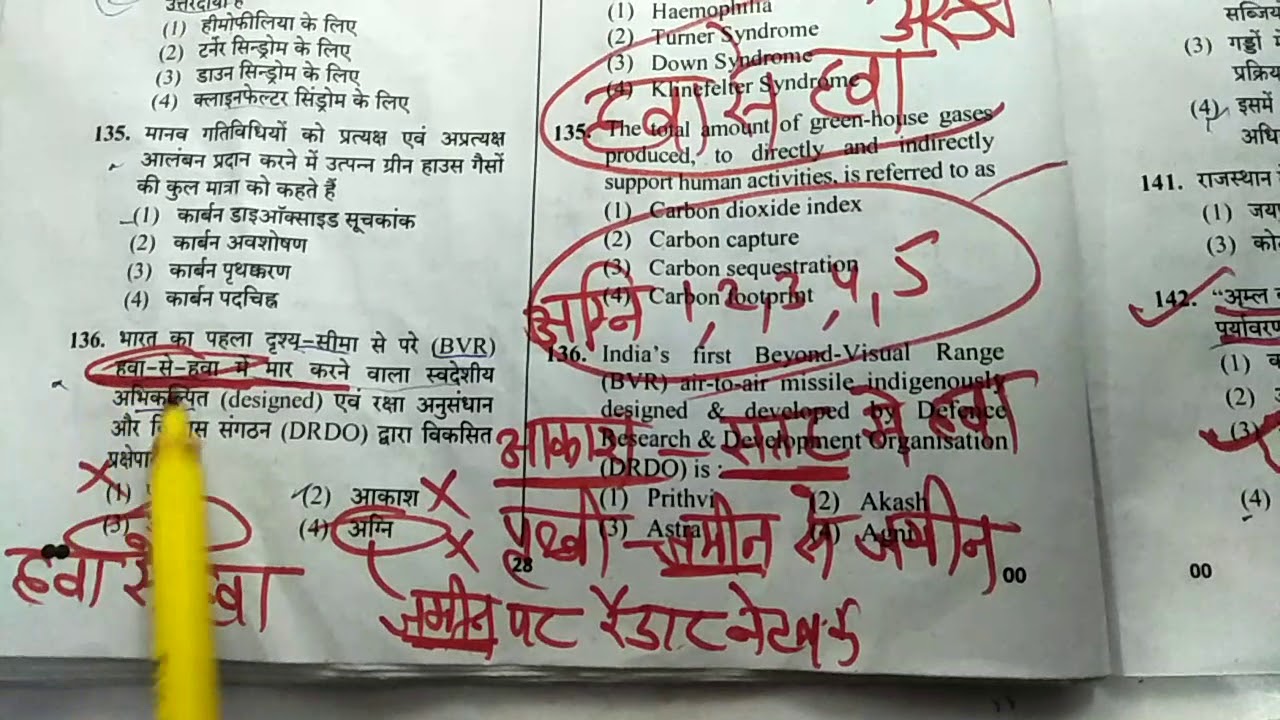 उत्तरदायी है
(1) हीमोफीलिया के लिए
(2) टर्नर सिन्ड्रोम के लिए
(3) डाउन सिन्ड्रोम के लिए
(4) क्लाइनफेल्टर सिंड्रोम के लिए
135. मानव गतिविधियों को प्रत्यक्ष एवं अप्रत्यक्ष
आलंबन प्रदान करने में उत्पन्न ग्रीन हाउस गैसों
की कुल मात्रा को कहते हैं
(1) कार्बन डाइऑक्साइड सूचकांक
(2) कार्बन अवशोषण
(3) कार्बन पृथक्करण
(4) कार्बन पदचिह्न
136. भारत का पहला दृश्य-सीमा से परे (BVR)
हवा-से-हवा में मार करने वाला स्वदेशीय
अभिकल्पित (designed) एवं रक्षा अनुसंधान
और संगठन (DRDO) द्वारा विकसित
(1)
(2) आकाश
(3)
(4) अग्नि
हवा से हवा
जमीन पट रैडाट नेटवर्क
(1) Haemophilia
(2) Turner Syndrome
(3) Down Syndrome
(4) Klinefelter Syndrome
अस्त्र
हवा से हवा
135. The total amount of green-house gases
produced, to directly and indirectly
support human activities, is referred to as
(1) Carbon dioxide index
(2) Carbon capture
(3) Carbon sequestration
(4) Carbon footprint
अग्नि 1, 2, 3, 4, 5
136. India's first Beyond-Visual Range
(BVR) air-to-air missile indigenously
designed & developed by Defence
Research & Development Organisation
(DRDO) is :
(1) Prithvi
(2) Akash
(3) Astra
(4) Agni
आकाश - सतह से हवा
पृथ्वी - जमीन से जमीन
28
00
सब्जिय
(3) गड्ढों
प्रक्रिय
(4) इसमें
अधि
141. राजस्थान
(1) जया
(3) को
142. "अम्ल
पर्यावरण
(1)
(2)
(3)
(4)
00